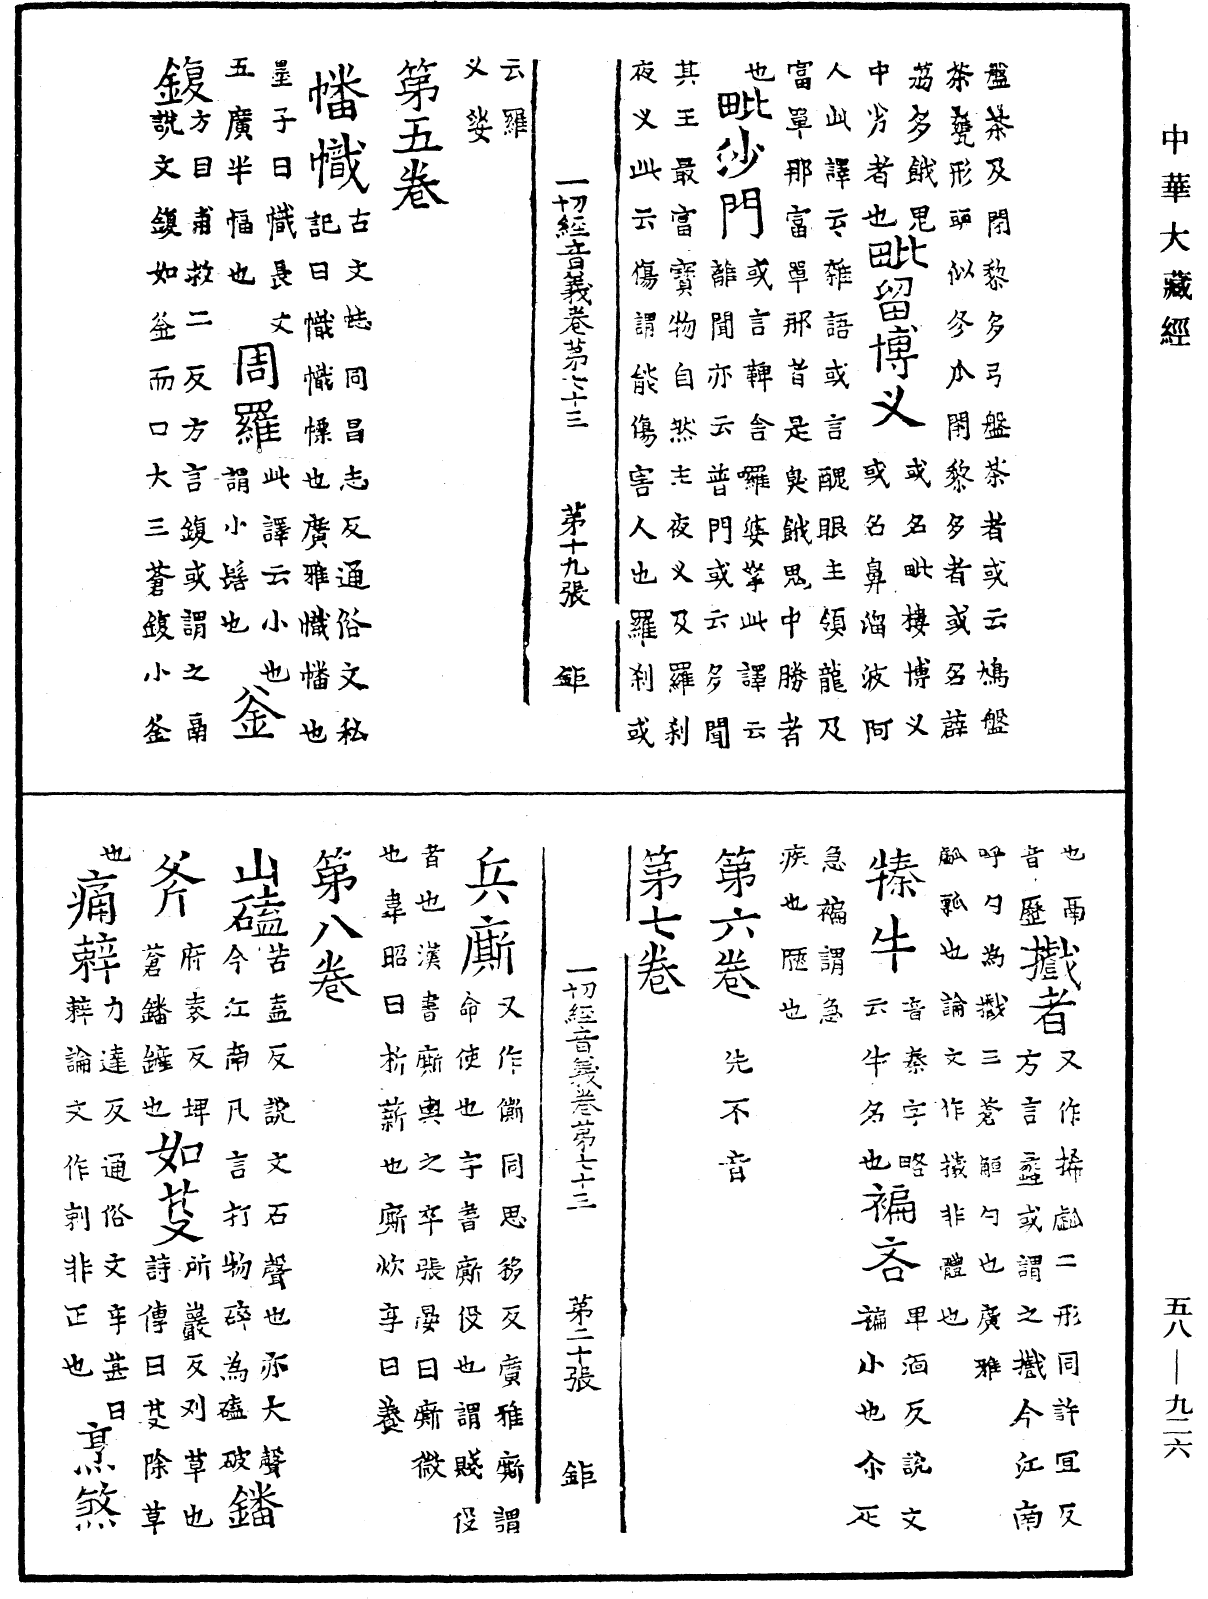 中華大藏經
盤茶及閉黎多弓盤茶者或云鳩盤
茶甕形面似冬瓜閉黎多者或名薜
荔多餓鬼
中劣者也
毗留博义
或名毗樓博义
或名鼻溜波阿
人此譯云雜語或言醜眼主領龍及
富單那富單那昔是臭餓鬼中勝者
也
毗沙門
或言鞞舍囉婆拏此譯云
離聞亦云普門或云多聞
其王最富寶物自然主夜义及羅刹
夜义此云傷謂能傷害人也羅刹或
一切經音義卷第七十三 第十九張 鉅
云羅
义娑
第五卷
幡幟
古文同昌志反通俗文私
記曰幟幟慓也廣雅幟幡也
墨子曰幟長丈
五廣半幅也
周羅
此譯云小也
謂小髻也
釜
鍑
方目甫救二反方言鍑或謂之鬲
說文鍑如釜而口大三蒼鍑小釜
也鬲
音歷
㰕者
又作二形同許宜反
方言蠡或謂之㰕今江南
呼勺為㰕三蒼勺也廣雅
瓠瓢也論文作非體也
牛
音秦字略
云牛名也
褊吝
卑湎反說文
褊小也尒疋
急褊謂急
疾也陿也
第六卷 先不音
第七卷
一切經音義卷第七十三 第二十張 鉅
兵廝
又作同思移反廣雅廝謂
命使也字書廝役也謂賤役
者也漢書廝輿之卒張晏曰廝微
也韋昭曰析薪也廝炊亨曰養
第八卷
山磕
苦盍反說文石聲也亦大聲
今江南凡言打物碎為磕破
鐇
斧
府袁反埤
蒼鐇鏟也
如芟
所巖反刈草也
詩傳曰芟除草
也
痛辢
力達反通俗文辛甚曰
辢論文作剌非正也
烹煞
五八—九二六